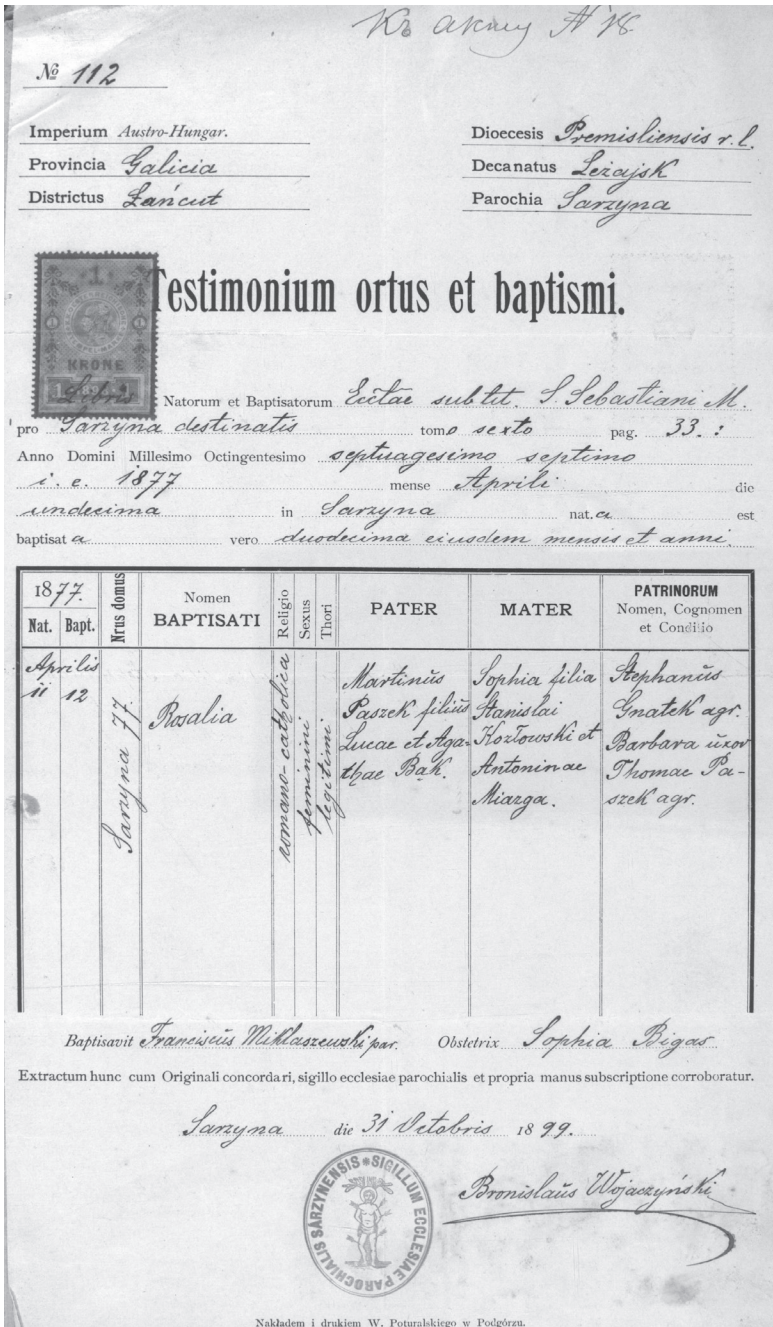 Къ акту N 18.
№ 112
Imperium Austro-Hungar.
Provincia Galicia
Districtus Łańcut
Dioecesis Premisliensis r. l.
Decanatus Leżajsk
Parochia Sarzyna
1
KRONE
Testimonium ortus et baptismi.
Libris Natorum et Baptisatorum Ecctae sub tit. S. Sebastiani M.
pro Sarzyna destinatis tomo sexto pag. 33. :
Anno Domini Millesimo Octingentesimo septuagesimo septimo
i. e. 1877 mense Aprili die
undecima in Sarzyna nat.a est
baptisat a vero duodecima eiusdem mensis et anni.
1877.
Nat. Bapt.
Nrus domus
Nomen
BAPTISATI
Religio
Sexus
Thori
PATER
MATER
PATRINORUM
Nomen, Cognomen
et Conditio
Aprilis
11 12
Sarzyna 77.
Rosalia
romano-catholica
feminini
legitimi
Martinus
Paszek filius
Lucae et Aga-
thae Bąk.
Sophia filia
Stanislai
Kozłowski et
Antoninae
Miazga.
Stephanus
Gnatek agr.
Barbara uxor
Thomae Pa-
szek agr.
Baptisavit Franciscus Miklaszewski par. Obstetrix Sophia Bigas
Extractum hunc cum Originali concordari, sigillo ecclesiae parochialis et propria manus subscriptione corroboratur.
Sarzyna die 31 Octobris 1899.
SIGILLUM ECCLESIAE PAROCHIALIS SARZYNENSIS
Bronislaus Wojaczyński
Nakładem i drukiem W. Poturalskiego w Podgórzu.